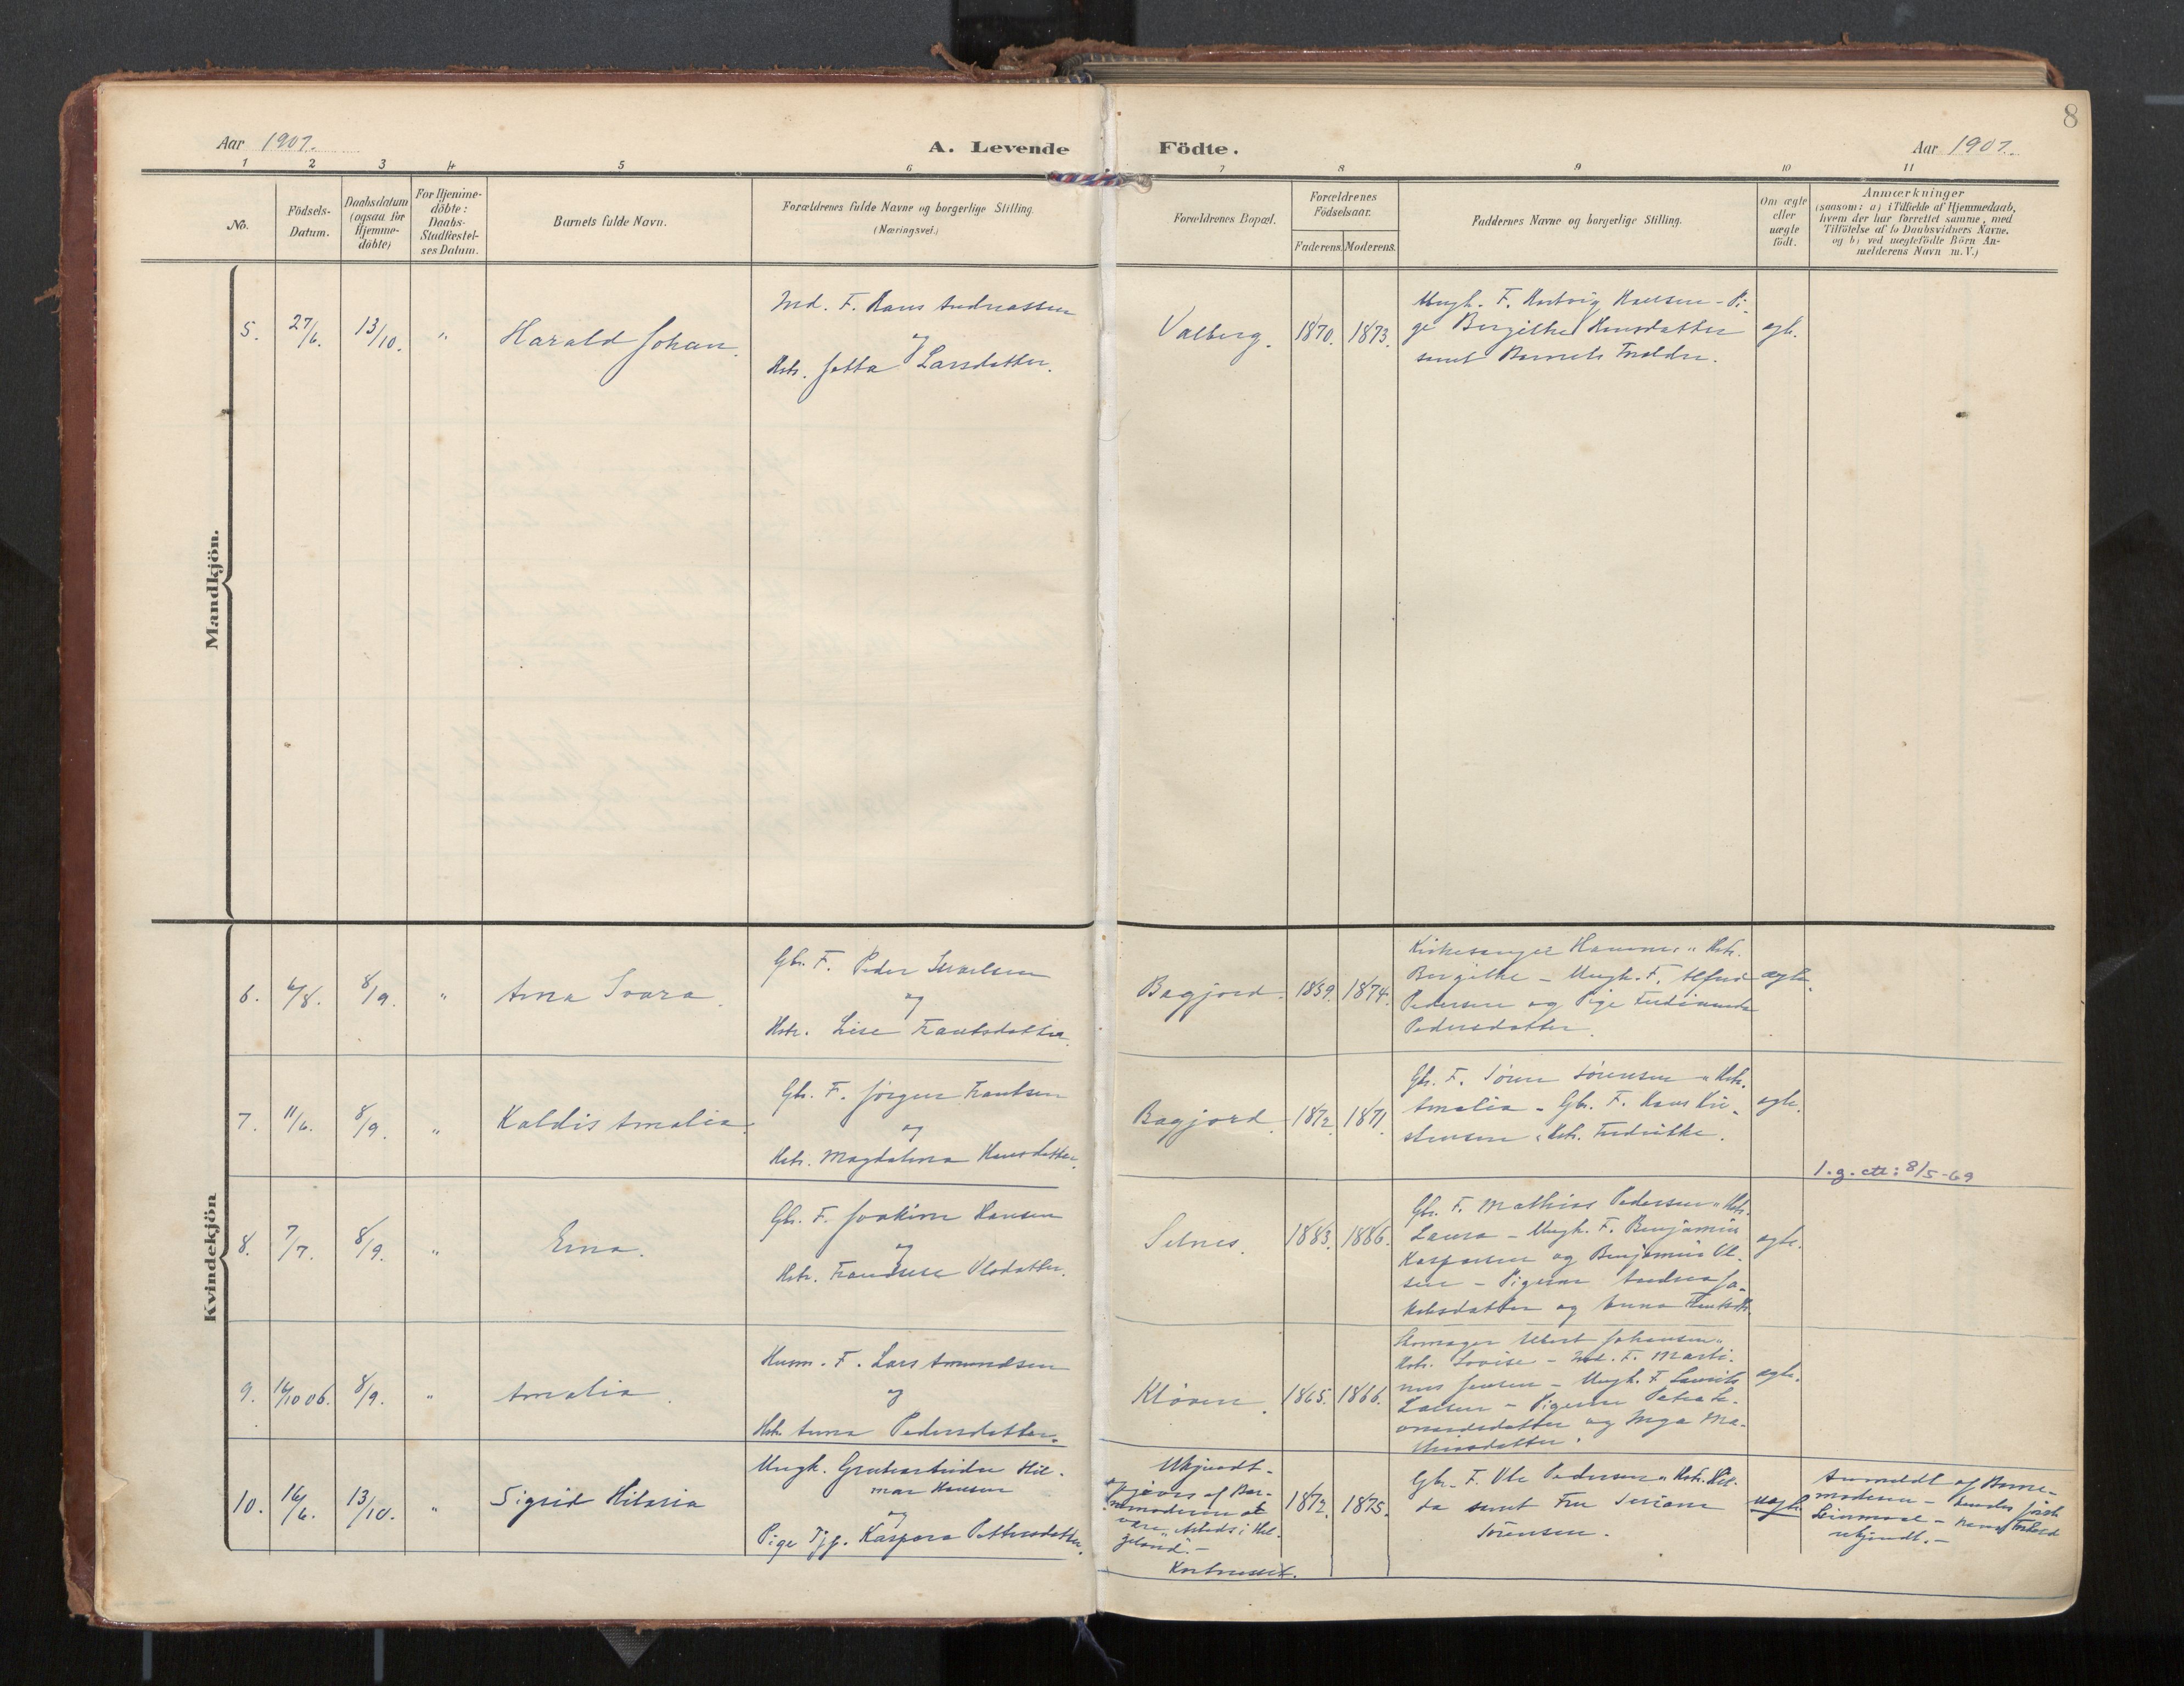 8
Aar 1907.
A. Levende Födte.
Aar 1907.
1 2 3 4 5 6 7 8 9 10 11
No.
Födsels-
Datum.
Daabsdatum
(ogsaa for
Hjemme-
döbte)
For Hjemme-
döbte:
Daabs-
Stadfæstel-
ses Datum.
Barnets fulde Navn.
Forældrenes fulde Navne og borgerlige Stilling.
(Næringsvei.)
Forældrenes Bopæl.
Forældrenes
Födselsaar.
Faderens. Moderens.
Faddernes Navne og borgerlige Stilling.
Om ægte
eller
uægte
födt.
Anmærkninger
(saasom: a) i Tilfælde af Hjemmedaab,
hvem der har forrettet samme, med
Tilföielse af to Daabsvidners Navne,
og b) ved uægtefödte Börn An-
melderens Navn m. V.)
Mandkjön.
5. 27/6. 13/10. "
Harald Johan.
Ind. F. Hans Andreassen
og
Hstr. Jetta Larsdatter.
Valberg. 1870. 1873.
Ungk. F. Hartvig Hansen - Pi-
ge Bergithe Hansdatter
samt Barnets Forældre.
ægte.
Kvindekjön
6. 6/8. 8/9. "
Arna Svara.
Gbr. F. Peder
og
Hstr. Lise Frantsdatter.
Bagjord. 1859. 1874.
Kirkesanger " Hstr.
Bergithe - Ungk. F. Alfred
Pedersen og Pige Ferdinanda
Pedersdatter.
ægte.
7. 11/6. 8/9. "
Kaldis Amalia.
Gbr. F. Jörgen Frantsen
og
Hstr. Magdalena Hansdatter.
Bagjord. 1872. 1871.
Gbr. F. Sören Sörensen " Hstr.
Amalia - Gbr. F. Hans Kri-
stensen " Hstr. Fredrikke.
ægte.
1.g. att: 8/5-69
8. 7/7. 8/9. "
Erna.
Gbr. F. Joakim Hansen
og
Hstr. Olsdatter.
Selnes. 1883. 1886.
Gbr. F. Mathias Pedersen " Hstr.
Laura - Ungk. F. Benjamin
Kaspersen og Benjamin Ol-
sen - Pigerne Andrea Ja-
kobsdatter og Anna
ægte.
9. 16/10 06. 8/9. "
Amalia.
Husm. F. Lars Amundsen
og
Hstr. Anna Pedersdatter.
Kloven. 1865. 1866.
Skomager Albert Johansen "
Hstr. Lovise - Ind. F. Marti-
nus Jensen - Ungk. F. Laurits
Larsen - Pigerne Petra Le-
onardsdatter og Inga Ma-
thiasdatter.
ægte.
10. 16/6. 13/10. "
Sigrid Hilaria
Ungk. Grubearbeider Hil-
mar Hansen
og
Pige Tjg. Kaspara Pettersdatter.
Ukjendt -
opgives af Bar-
nemoderen at
være "Arbeds i Hel-
geland". -
1872. 1875.
Gbr. F. Ole Pedersen " Hstr. Hil-
da samt Fru
Sörensen.
uægte
Anmeldt af Barne-
moderen - hendes förste
Leiermaal - hans Forhold
ukjendt. -